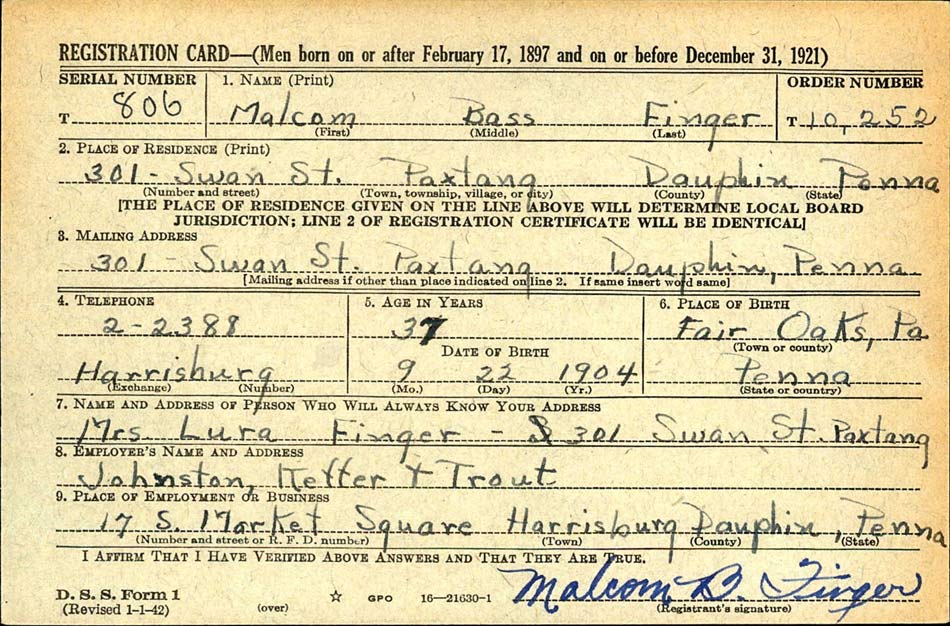 REGISTRATION CARD—(Men born on or after February 17, 1897 and on or before December 31, 1921)
SERIAL NUMBER 1. NAME (Print) ORDER NUMBER
T 806 Malcom Bass Finger T 10,252
(First) (Middle) (Last)
2. PLACE OF RESIDENCE (Print)
301 - Swan St. Paxtang Dauphin Penna
(Number and street) (Town, township, village, or city) (County) (State)
[THE PLACE OF RESIDENCE GIVEN ON THE LINE ABOVE WILL DETERMINE LOCAL BOARD
JURISDICTION; LINE 2 OF REGISTRATION CERTIFICATE WILL BE IDENTICAL]
3. MAILING ADDRESS
301 - Swan St. Paxtang Dauphin, Penna.
[Mailing address if other than place indicated on line 2. If same insert word same]
4. TELEPHONE 5. AGE IN YEARS 6. PLACE OF BIRTH
2-2388 37 Fair Oaks, Pa
(Town or county)
DATE OF BIRTH
Harrisburg 9 22 1904 Penna
(Exchange) (Number) (Mo.) (Day) (Yr.) (State or country)
7. NAME AND ADDRESS OF PERSON WHO WILL ALWAYS KNOW YOUR ADDRESS
Mrs. Lura Finger - 301 Swan St. Paxtang
8. EMPLOYER'S NAME AND ADDRESS
Johnston, Ketter + Trout
9. PLACE OF EMPLOYMENT OR BUSINESS
17 S. Market Square Harrisburg Dauphin, Penna
(Number and street or R. F. D. number) (Town) (County) (State)
I AFFIRM THAT I HAVE VERIFIED ABOVE ANSWERS AND THAT THEY ARE TRUE.
Malcom B. Finger
D. S. S. Form 1
(Revised 1-1-42) (over) ☆ GPO 16—21630-1 (Registrant's signature)